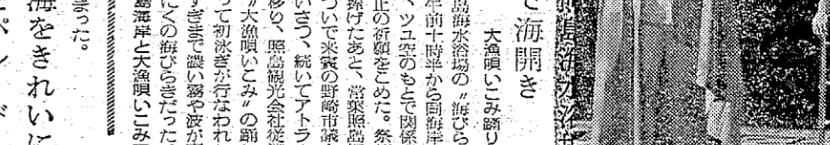 で海開き
大漁唄いこみ踊り
島海水浴場の〝海びら
午前十時半から同海岸
、ツユ空のもとで関係
止の祈願をこめた。祭
捧げたあと、常葉照島
ついで来賓の野崎市議
いさつ、続いてアトラ
移り、照島観光会社従
〝大漁唄いこみ〟の踊
って初泳ぎが行なわれ
すぎまで濃い霧や波が
にくの海びらきだった
島海岸と大漁唄いこみ
まった。
海をきれいに
ペンド